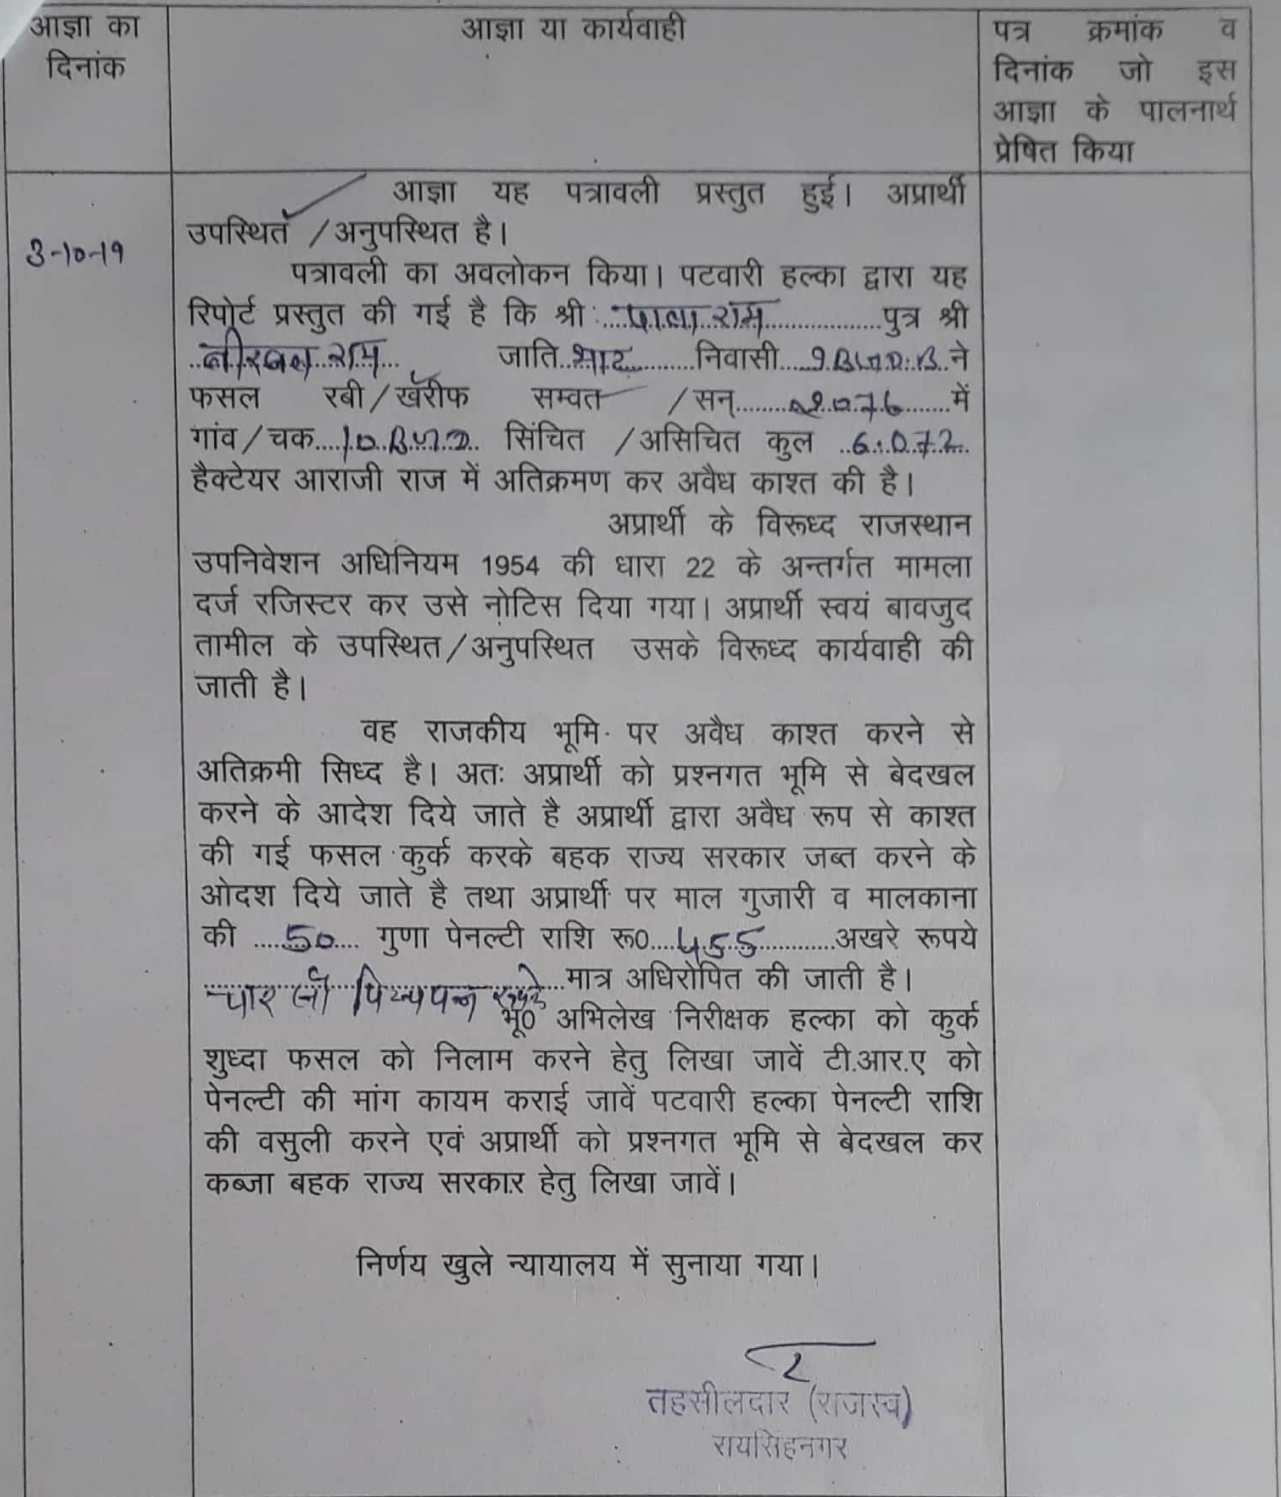 आज्ञा का
दिनांक
आज्ञा या कार्यवाही
पत्र क्रमांक व
दिनांक जो इस
आज्ञा के पालनार्थ
प्रेषित किया
3-10-19
आज्ञा यह पत्रावली प्रस्तुत हुई। अप्रार्थी
उपस्थित /अनुपस्थित है।
पत्रावली का अवलोकन किया। पटवारी हल्का द्वारा यह
रिपोर्ट प्रस्तुत की गई है कि श्री ......राम.................पुत्र श्री
.....राम... जाति............निवासी...........ने
फसल रबी/खरीफ सम्वत /सन्........2076.......में
गांव/चक........ सिंचित /असिचित कुल ..6.072..
हैक्टेयर आराजी राज में अतिक्रमण कर अवैध काश्त की है।
अप्रार्थी के विरूध्द राजस्थान
उपनिवेशन अधिनियम 1954 की धारा 22 के अन्तर्गत मामला
दर्ज रजिस्टर कर उसे नोटिस दिया गया। अप्रार्थी स्वयं बावजुद
तामील के उपस्थित/अनुपस्थित उसके विरूध्द कार्यवाही की
जाती है।
वह राजकीय भूमि पर अवैध काश्त करने से
अतिक्रमी सिध्द है। अतः अप्रार्थी को प्रश्नगत भूमि से बेदखल
करने के आदेश दिये जाते है अप्रार्थी द्वारा अवैध रूप से काश्त
की गई फसल कुर्क करके बहक राज्य सरकार जब्त करने के
ओदश दिये जाते है तथा अप्रार्थी पर माल गुजारी व मालकाना
की ....50.... गुणा पेनल्टी राशि रू0....455...........अखरे रूपये
चार सौ पिच्चपन रूपये...मात्र अधिरोपित की जाती है।
भू0 अभिलेख निरीक्षक हल्का को कुर्क
शुध्दा फसल को निलाम करने हेतु लिखा जावें टी.आर.ए को
पेनल्टी की मांग कायम कराई जावें पटवारी हल्का पेनल्टी राशि
की वसुली करने एवं अप्रार्थी को प्रश्नगत भूमि से बेदखल कर
कब्जा बहक राज्य सरकार हेतु लिखा जावें।
निर्णय खुले न्यायालय में सुनाया गया।
तहसीलदार (राजस्व)
रायसिंहनगर